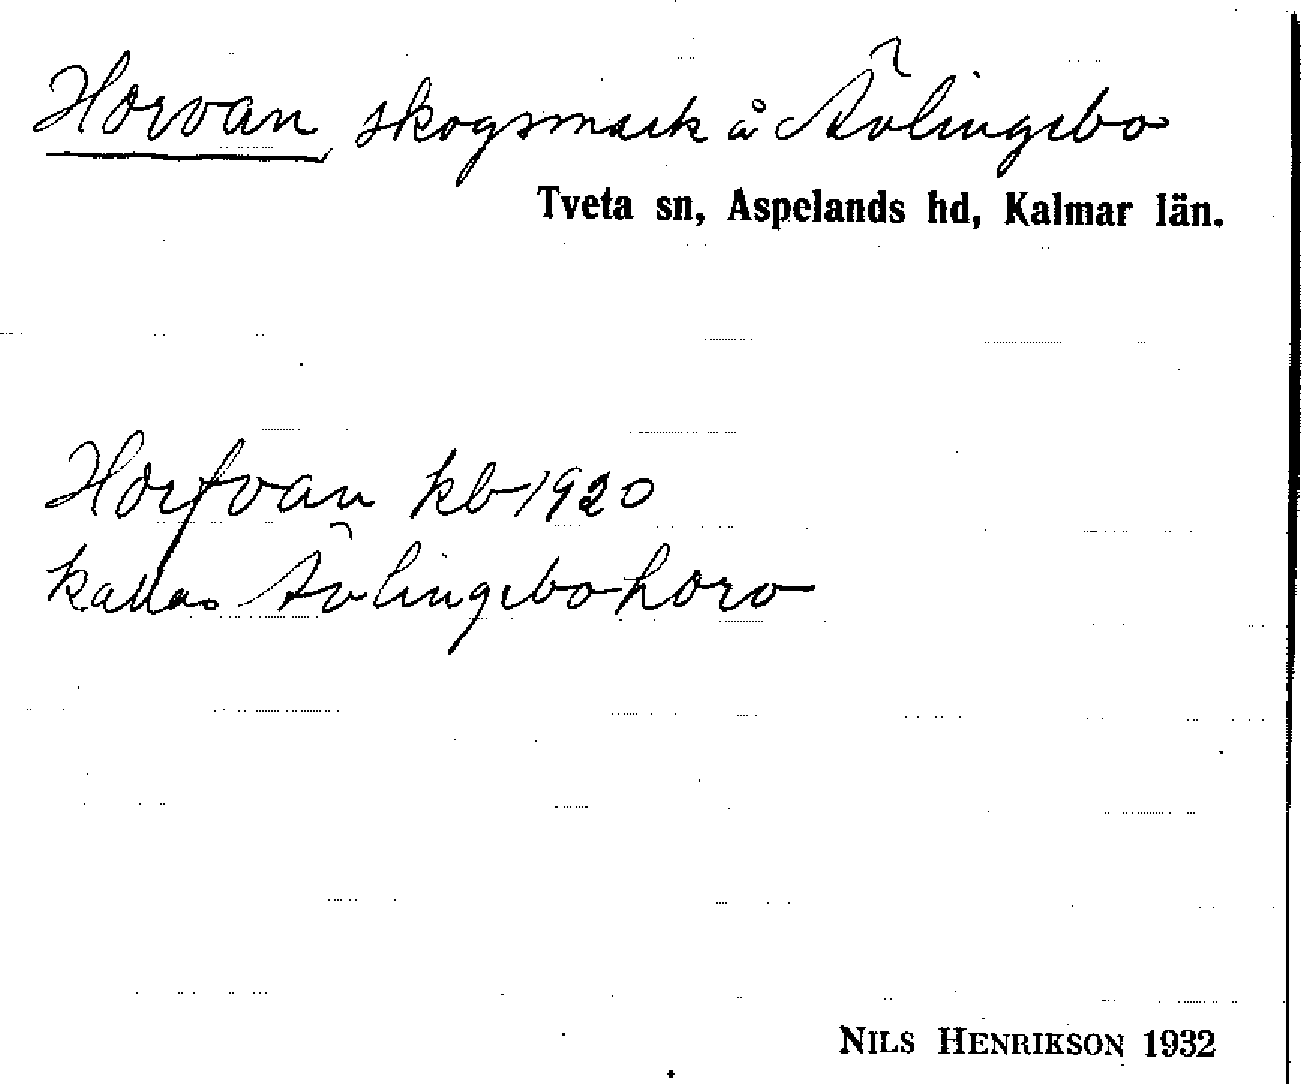 Horvan skogsmark å Ävlingebo
Tveta sn, Aspelands hd, Kalmar län.
Horfvan kb 1920
kallas Ävlingebohorv
NILS HENRIKSON 1932